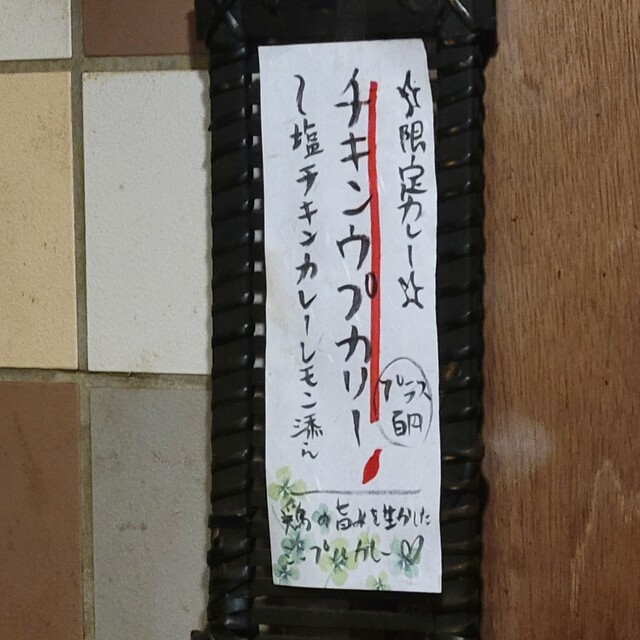 ☆限定カレー☆
チキンウプカリー
プラス
百円
〜塩チキンカレーレモン添へ
鶏の旨味を生かした
カレー♡